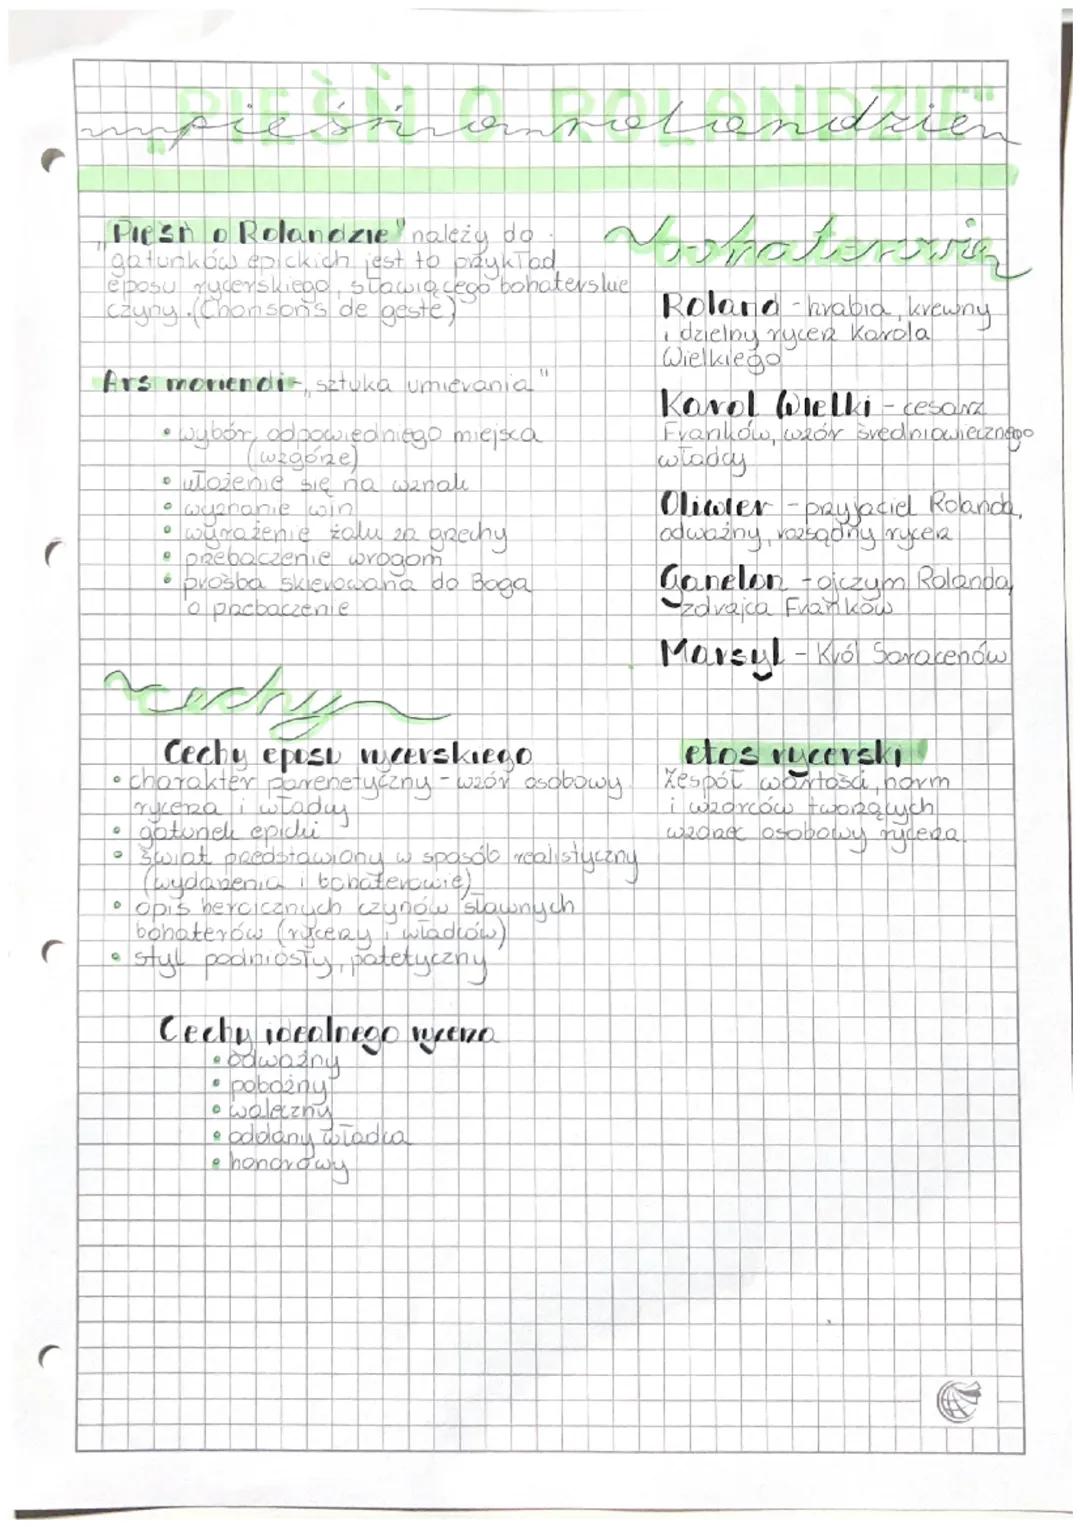 „PIEŚŃ O ROLANDZIE"
pieśń o rolandzie
„Pieśń o Rolandzie" należy do
gatunków epickich jest to przykład
eposu rycerskiego, sławiącego bohaterskie
czyny. (Chonson's de geste)
Ars moriendi - „sztuka umierania"
• wybór odpowiedniego miejsca
(wzgórze)
• ułożenie się na wznak
• wyznanie win
• wyrażenie żalu za grzechy
• przebaczenie wrogom
• prośba skierowana do Boga
o przebaczenie
bohaterowie
Roland - hrabia, krewny
i dzielny rycerz Karola
Wielkiego
Karol Wielki - cesarz
Franków, wzór średniowiecznego
władcy
Oliwier - przyjaciel Rolanda,
odważny, rozsądny rycerz
Ganelon - ojczym Rolanda,
zdrajca Franków
Marsyl - Król Saracenów
cechy
Cechy eposu rycerskiego
• charakter parenetyczny - wzór osobowy
rycerza i władcy
• gatunek epicki
• świat przedstawiony w sposób realistyczny
(wydarzenia i bohaterowie)
• opis heroicznych czynów sławnych
bohaterów (rycerzy i władców)
• styl podniosły, patetyczny
Cechy idealnego rycerza
• odważny
• pobożny
• waleczny
• oddany władca
• honorowy
etos rycerski
Zespół wartości, norm
i wzorców tworzących
wzorzec osobowy rycerza.